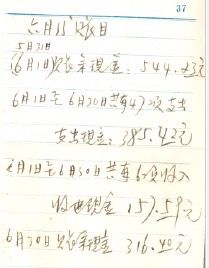 37
六月门账目
5月31日
(6月1日)账余现金：544.23元
6月1日至6月30日共有47项支出
支出现金：385.42元
6月1日至6月30日共有6项收入
收回现金 157.59元
6月30日账余现金 316.40元